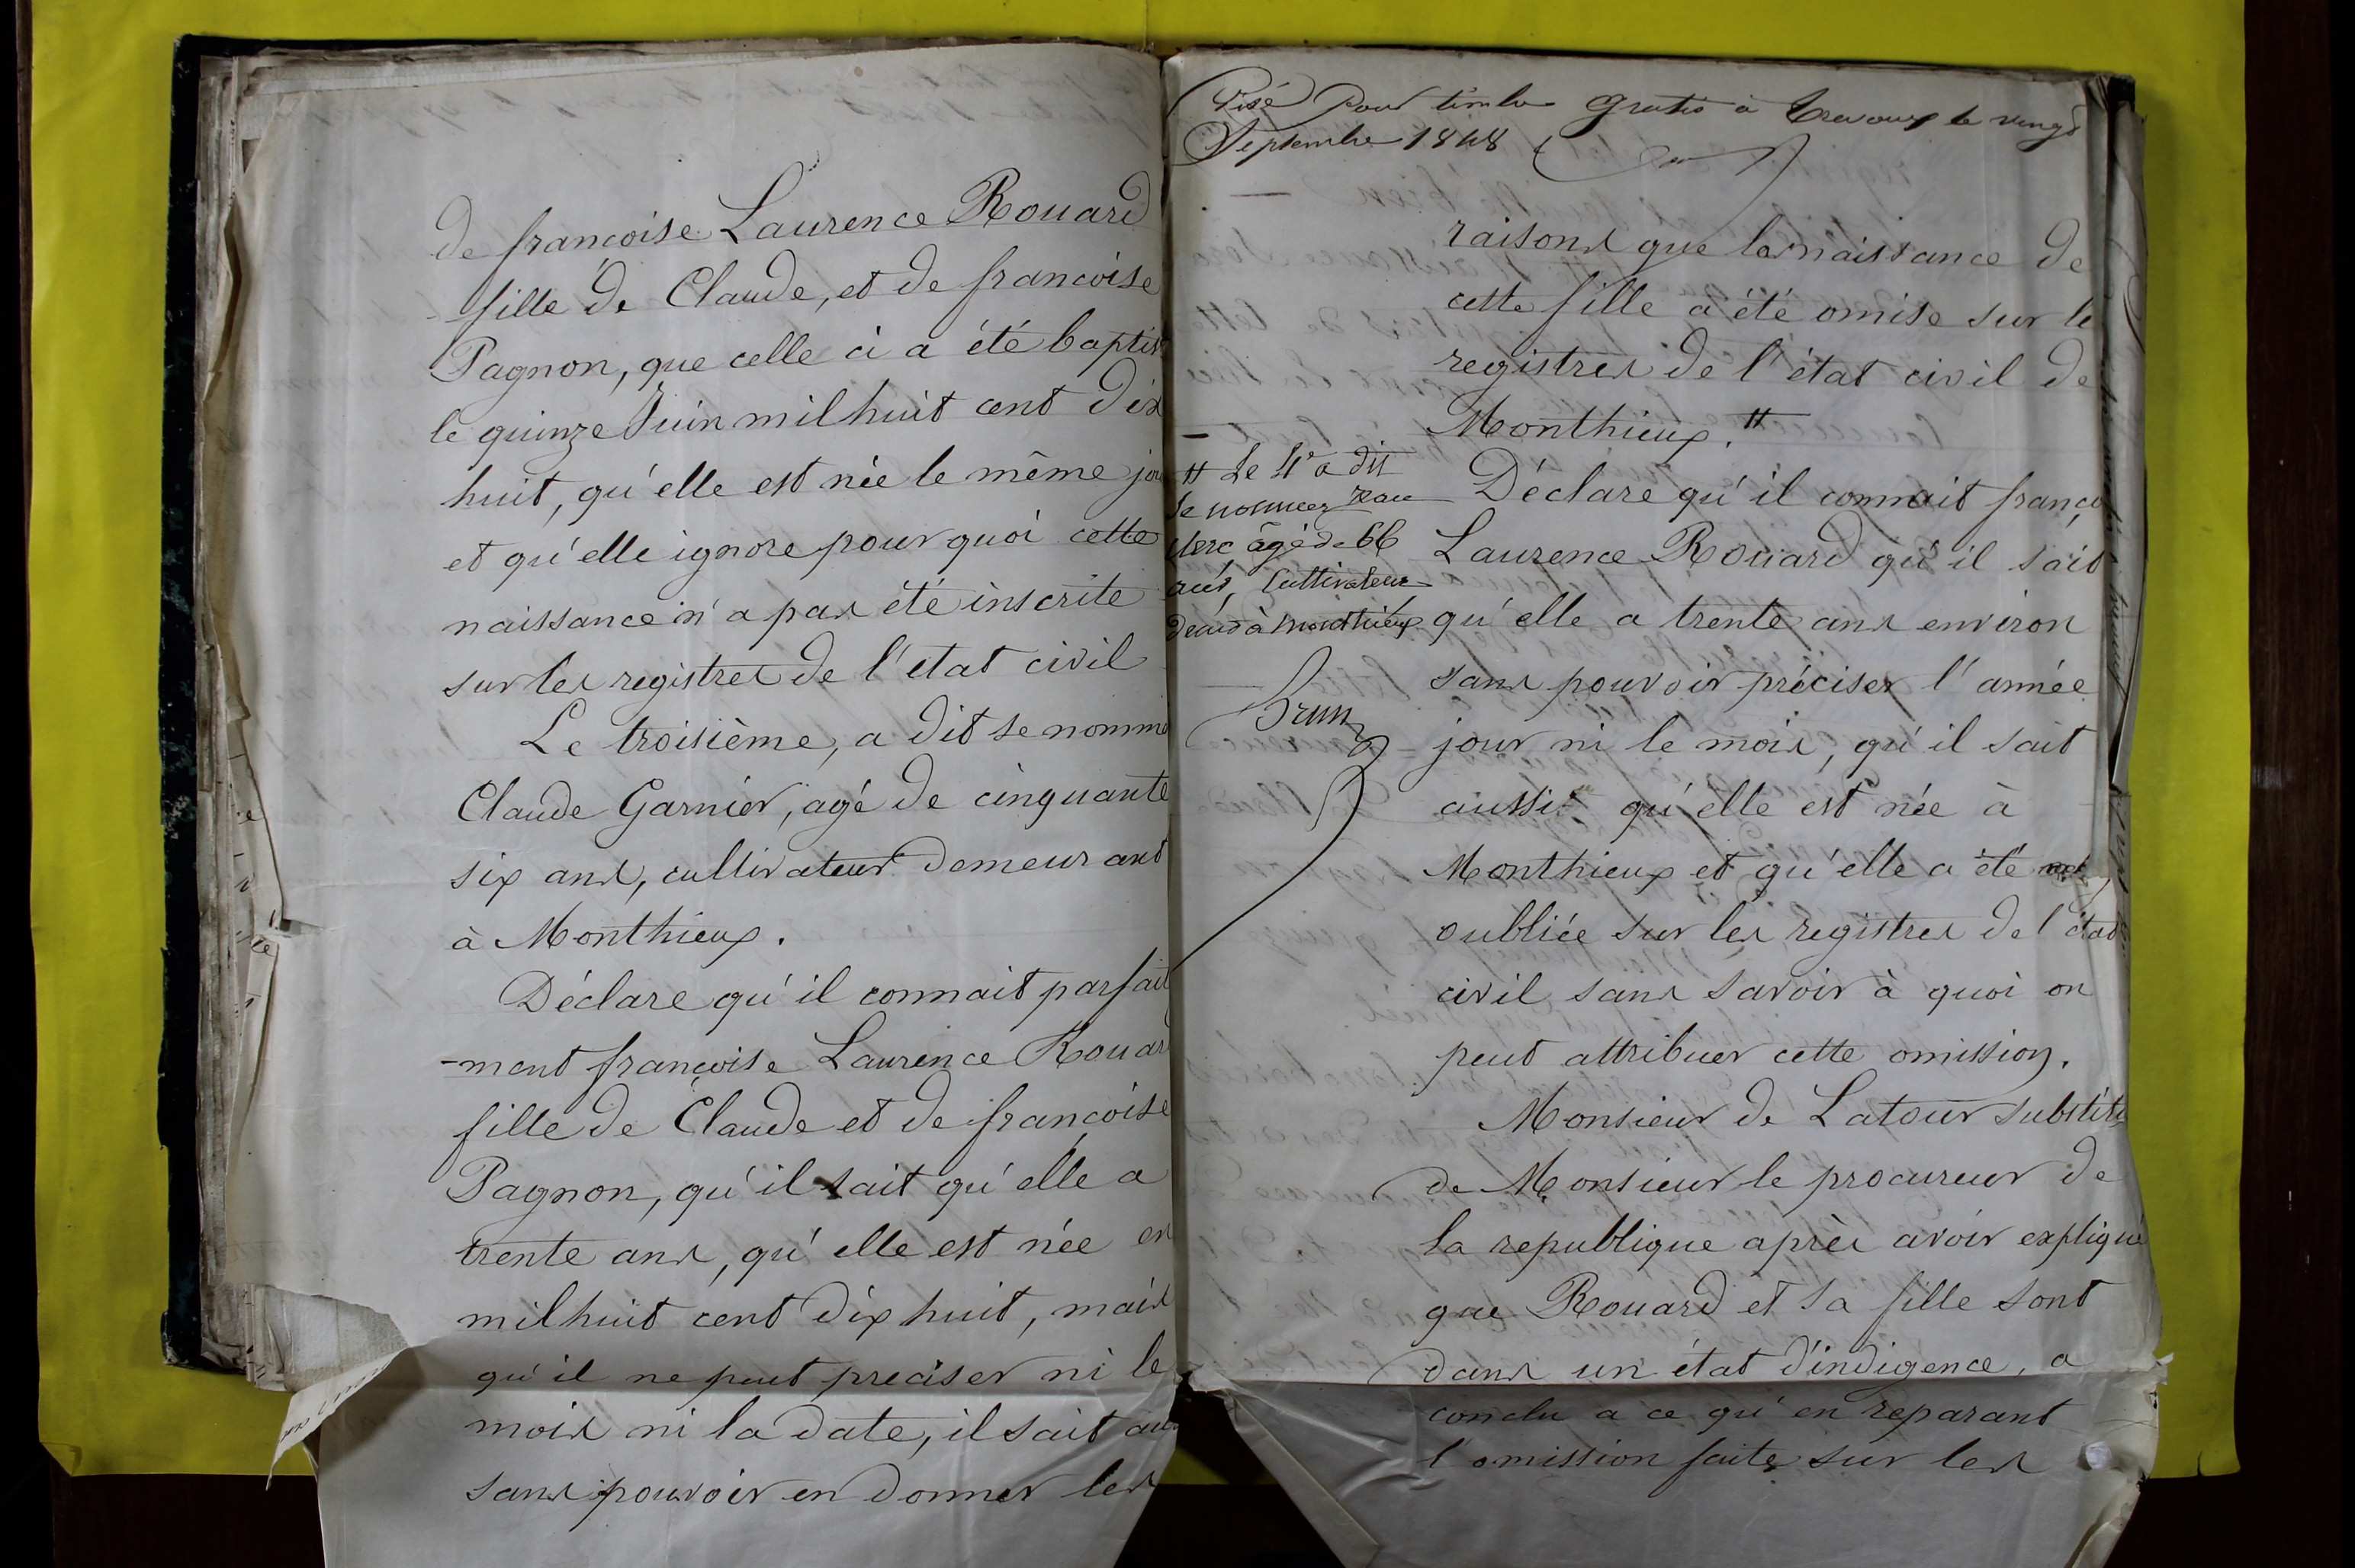 de françoise Laurence Rouard
fille de Claude, et de francoise
Pagnon, que celle ci a été baptis
le quinze Juin mil huit cent dix
huit, qu'elle est née le même jou
et qu'elle ignore pourquoi cette
naissance n'a pas été inscrite
sur les registres de l'etat civil
Le troisième, a dit se nomme
Claude Garnier, agé de cinquante
six ans, cultivateur demeurant
à Monthieux.
Déclare qu'il connait parfait
-ment françoise Laurence Rouar
fille de Claude et de francoise
Pagnon, qu'il sait qu'elle a
trente ans, qu'elle est née en
mil huit cent dix huit, mais
qu'il ne peut preciser ni le
mois ni la date, il sait au
sans pouvoir en donner les
Visé pour timbre Gratis à Trevoux le vingt
Septembre 1848
raisons que la naissance de
cette fille a été omise sur le
registres de l'état civil de
Monthieux. #
# Le 4e a dit
se nommer
clerc âgé de 66
ans, Cultivateur
demt à Monthieux
Brun
Déclare qu'il connait franço
Laurence Rouard qu'il sait
qu'elle a trente ans environ
sans pouvoir préciser l'année
jour ni le mois, qu'il sait
aussi qu'elle est née à
Monthieux et qu'elle a été
oubliée sur les registres de l'état
civil sans savoir à quoi on
peut attribuer cette omission.
Monsieur de Latour substitu
de Monsieur le procureur de
la republique après avoir expliqué
que Rouard et sa fille sont
dans un état d'indigence, a
conclu a ce qu'en reparant
l'omission faite sur les